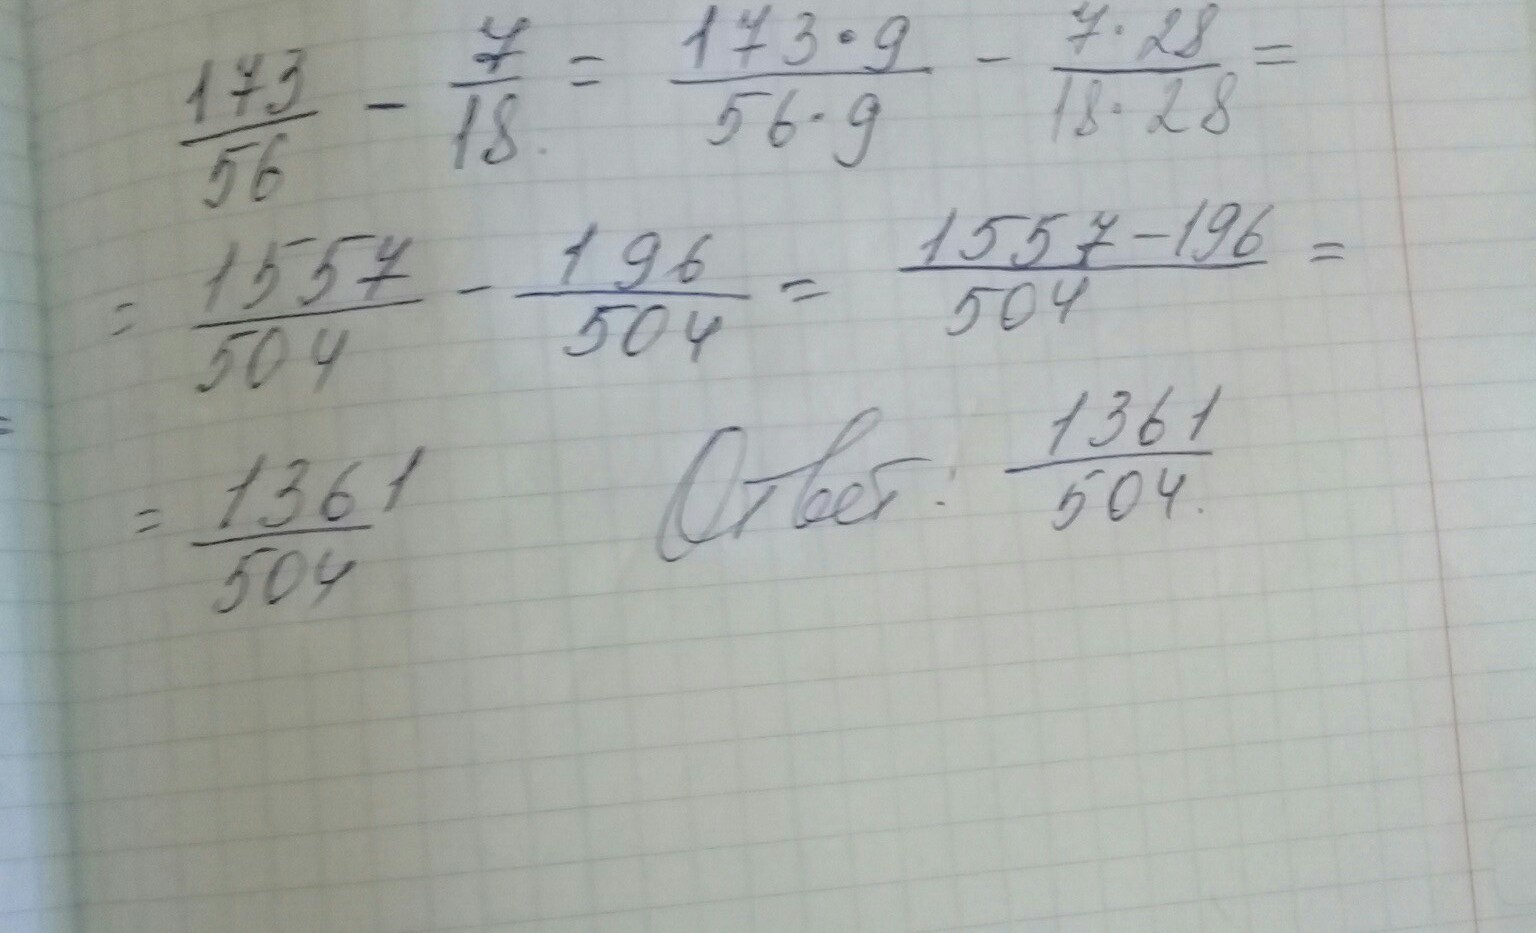 173/56 - 7/18 = 173·9/56·9 - 7·28/18·28 =
= 1557/504 - 196/504 = 1557-196/504 =
= 1361/504 Ответ: 1361/504.